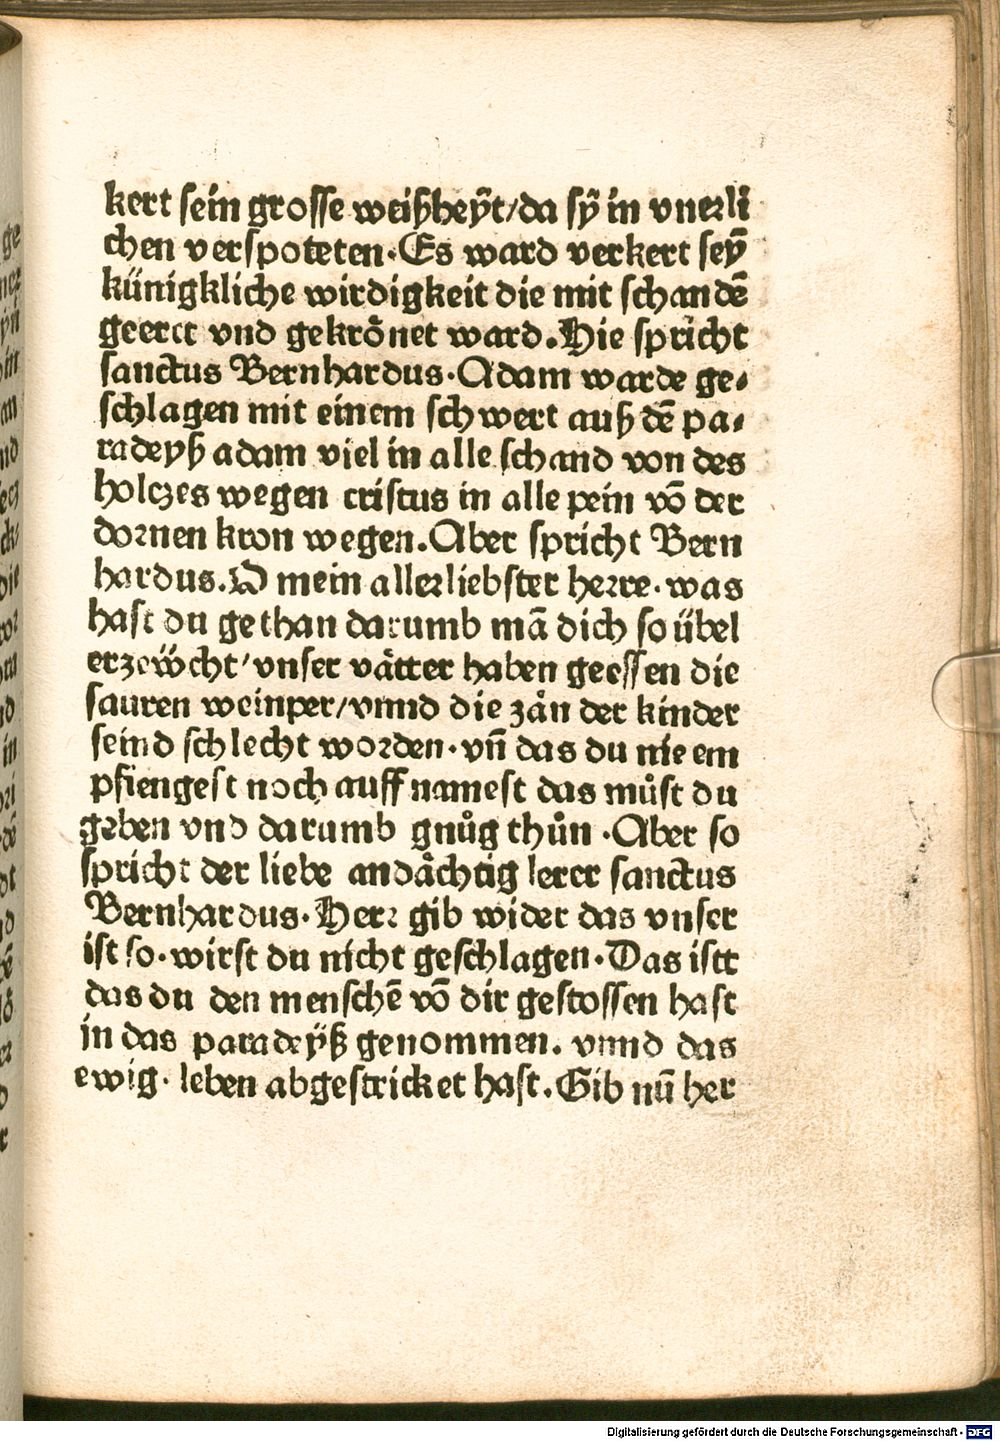 kert sein grosse weißheÿt/da sÿ in vnerli
chen verspoteten·Es ward verkert seÿ̄
künigkliche wirdigkeit die mit schandē
geerct vnd gekrönet ward.Hie spricht
sanctus Bernhardus·Adam warde ge⸗
schlagen mit einem schwert auß dē pa⸗
radeyß adam viel in alle schand von des
holczes wegen cristus in alle pein vō der
dornen kron wegen.Aber spricht Bern
hardus.O mein allerliebster herre·was
hast du gethan darumb mā dich so übel
erzewcht/vnser vätter haben geessen die
sauren weinper/vnnd die zän der kinder
seind schlecht worden·vn̄ das du nie em
pfiengest noch auff namest das můst du
geben vnd darumb gnůg thůn·Aber so
spricht der liebe andächtig lerer sanctus
Bernhardus·Herr gib wider das vnser
ist so·wirst du nicht geschlagen·Das istt
das du den menschē vō dir gestossen hast
in das paradeÿß genommen. vnnd das
ewig· leben abgestricket hast.Gib nū her
Digitalisierung gefördert durch die Deutsche Forschungsgemeinschaft - DFG